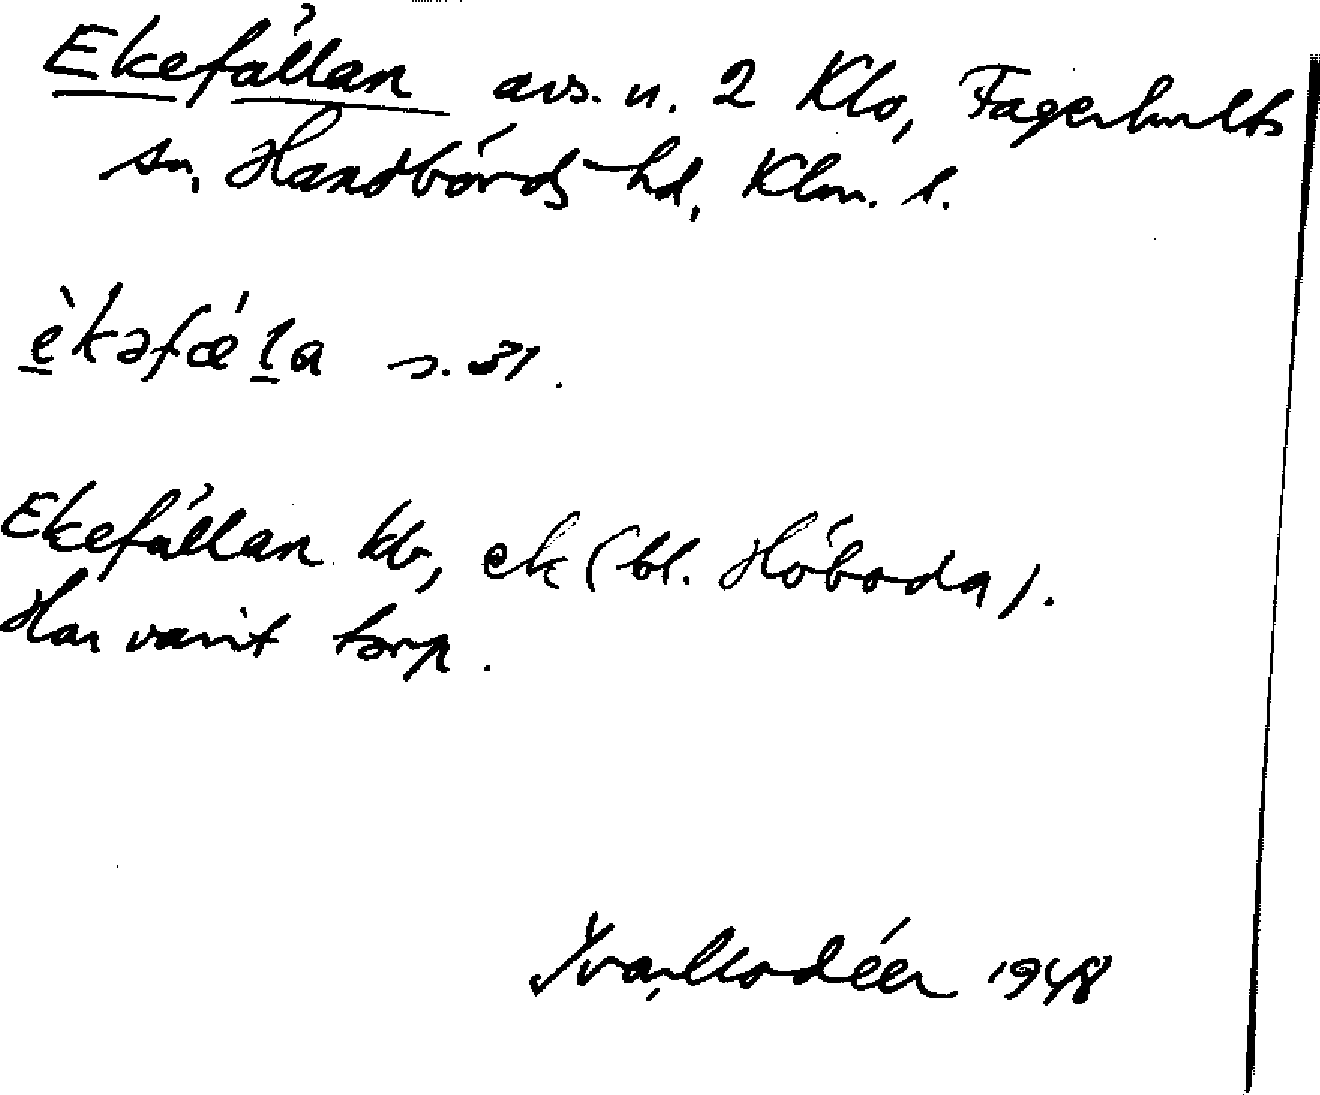 Ekefållan avs. u. 2 Klo, Fagerhults
sn, Handbörds hd, Klm. l.
èkəfǽḷa s. 31.
Ekefållan kb, ek (bl. Höboda).
Har varit torp.
Ivar Modéer 1948